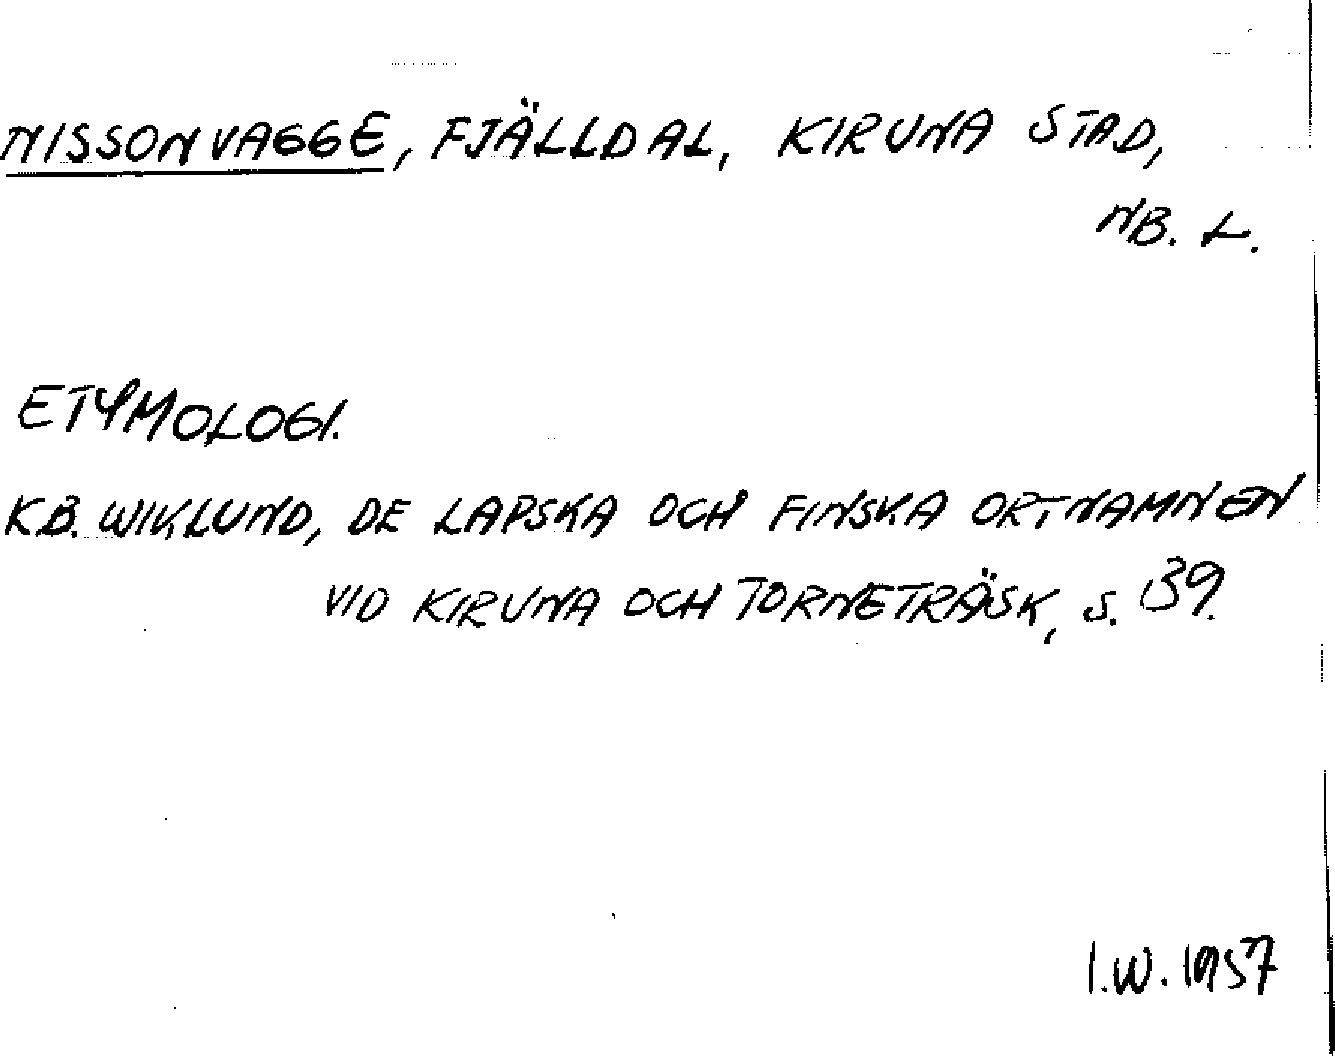 NISSONVAGGE, FJÄLLDAL, KIRUNA STAD,
NB. L.
ETYMOLOGI.
K.B. WIKLUND, DE LAPSKA OCH FINSKA ORTNAMNEN
VID KIRUNA OCH TORNETRÄSK, S. 39.
I.W. 1957